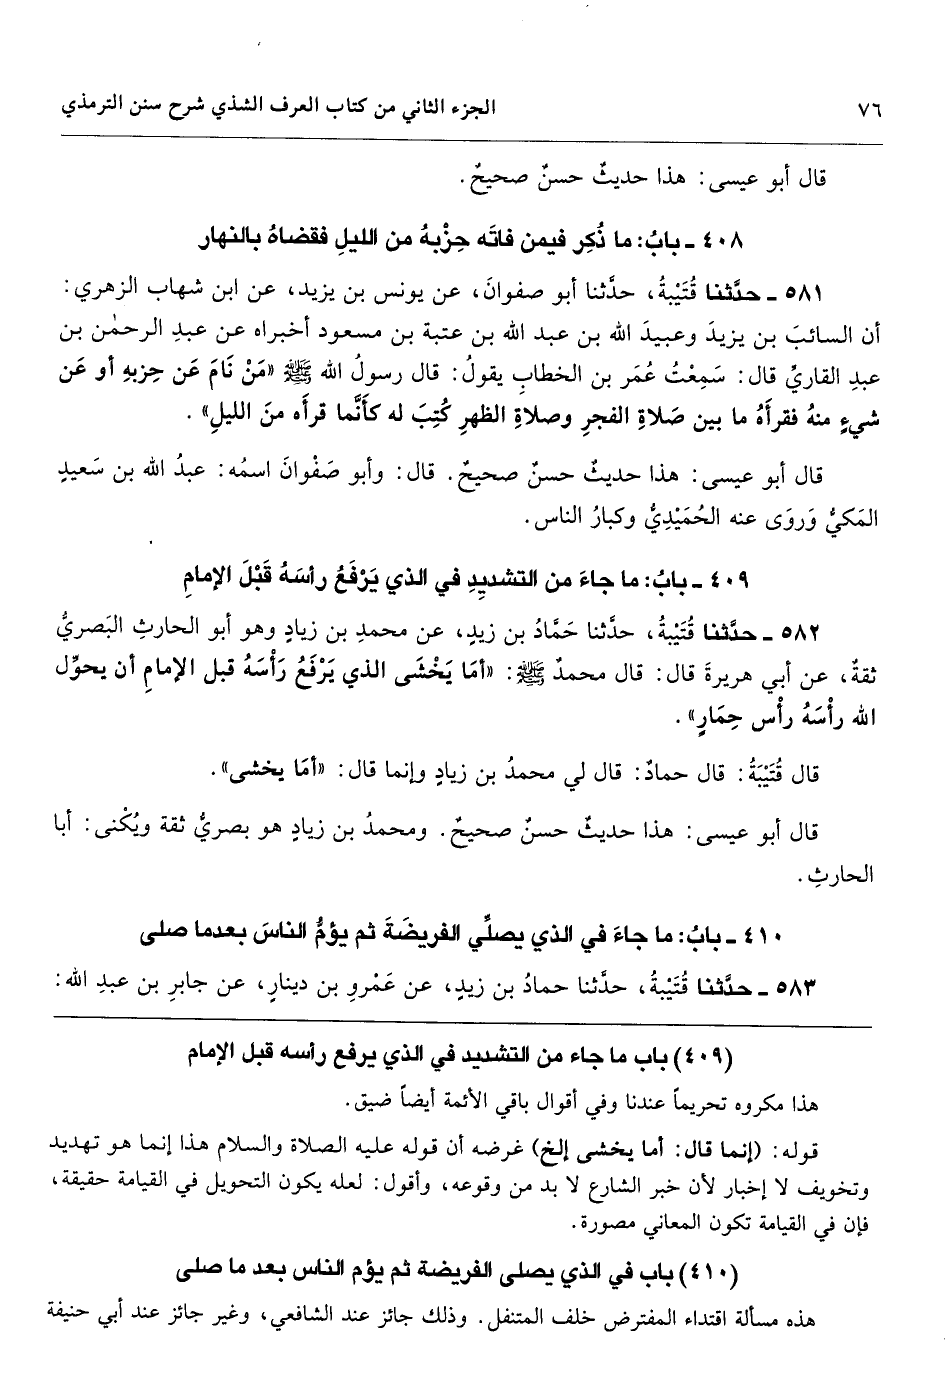 ٧٦ الجزء الثاني من كتاب العرف الشذي شرح سنن الترمذي
قال أبو عيسى: هذا حديثٌ حسنٌ صحيحٌ.
٤٠٨ ـ بابُ: ما ذُكِر فيمن فاتَه حِزْبهُ من الليلِ فقضاهُ بالنهار
٥٨١ ـ حدَّثنا قُتَيْبةُ، حدَّثنا أبو صفوانَ، عن يونس بن يزيد، عن ابن شهاب الزهري:
أن السائبَ بن يزيدَ وعبيدَ الله بن عبد الله بن عتبة بن مسعود أخبراه عن عبدِ الرحمٰن بن
عبدِ القاريِّ قال: سَمِعْتُ عُمَر بن الخطابِ يقولُ: قال رسولُ الله ﷺ «مَنْ نَامَ عَن حِزبهِ أو عَن
شيءٍ منهُ فقرأَهُ ما بين صَلاةِ الفجرِ وصلاةِ الظهرِ كُتِبَ له كأنَّما قرأه منَ الليلِ».
قال أبو عيسى: هذا حديثٌ حسنٌ صحيحٌ. قال: وأبو صَفْوانَ اسمُه: عبدُ الله بن سَعيدٍ
المَكيُّ وَروَى عنه الحُمَيْدِيُّ وكبارُ الناس.
٤٠٩ ـ بابُ: ما جاءَ من التشديِدِ في الذي يَرْفَعُ رأسَهُ قَبْلَ الإمامِ
٥٨٢ ـ حدَّثنا قُتَيْبةُ، حدَّثنا حَمَّادُ بن زيدٍ، عن محمدِ بن زيادٍ وهو أبو الحارثِ البَصريُّ
ثقةٌ، عن أبي هريرةَ قال: قال محمدٌ ﷺ: «أمَا يَخْشَى الذي يَرْفَعُ رَأْسَهُ قبل الإمامِ أن يحوِّل
الله رأْسَهُ رأْس حِمَارٍ».
قال قُتَيْبَةُ: قال حمادٌ: قال لي محمدُ بن زيادٍ وإنما قال: «أمَا يخشى».
قال أبو عيسى: هذا حديثٌ حسنٌ صحيحٌ. ومحمدُ بن زيادٍ هو بصريٌّ ثقة ويُكْنى: أبا
الحارثِ.
٤١٠ ـ بابُ: ما جاءَ في الذي يصلِّي الفريضَةَ ثم يؤمُّ الناسَ بعدما صلى
٥٨٣ ـ حدَّثنا قُتَيْبةُ، حدَّثنا حمادُ بن زيدٍ، عن عَمْروِ بن دينارٍ، عن جابرِ بن عبدِ الله:
(٤٠٩) باب ما جاء من التشديد في الذي يرفع رأسه قبل الإمام
هذا مكروه تحريماً عندنا وفي أقوال باقي الأئمة أيضاً ضيق.
قوله: (إنما قال: أما يخشى إلخ) غرضه أن قوله عليه الصلاة والسلام هذا إنما هو تهديد
وتخويف لا إخبار لأن خبر الشارع لا بد من وقوعه، وأقول: لعله يكون التحويل في القيامة حقيقة،
فإن في القيامة تكون المعاني مصورة.
(٤١٠) باب في الذي يصلى الفريضة ثم يؤم الناس بعد ما صلى
هذه مسألة اقتداء المفترض خلف المتنفل. وذلك جائز عند الشافعي، وغير جائز عند أبي حنيفة